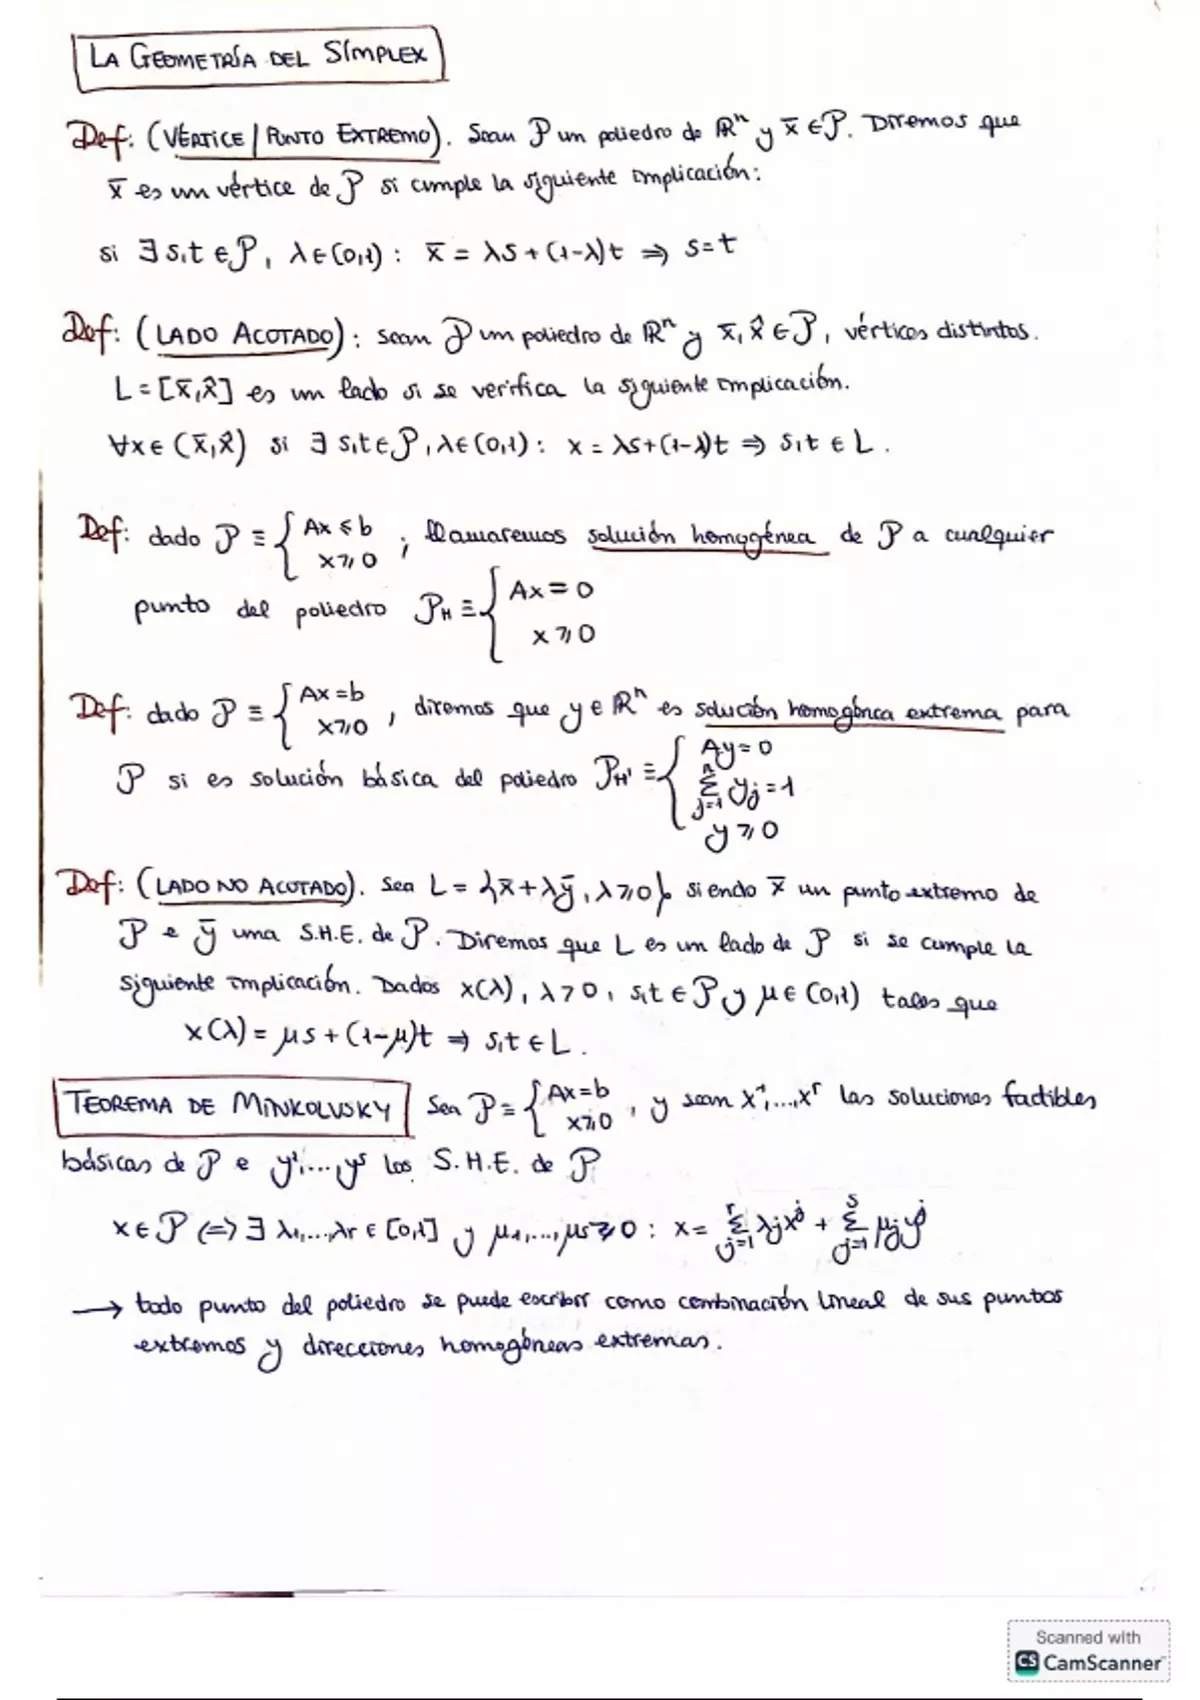 LA GEOMETRÍA DEL SÍMPLEX
Def: (VÉRTICE / PUNTO EXTREMO). Sean P um poliedro de ℝⁿ y x̄ ∈ P. Diremos que
x̄ es um vértice de P si cumple la siguiente implicación:
si ∃ s,t ∈ P, λ ∈ (0,1) : x̄ = λs + (1-λ)t ⇒ s=t
Def: (LADO ACOTADO): sean P um poliedro de ℝⁿ y x̄, x̂ ∈ P, vértices distintos.
L = [x̄, x̂] es um lado si se verifica la siguiente implicación.
∀x ∈ (x̄, x̂) si ∃ s,t ∈ P, λ ∈ (0,1) : x = λs + (1-λ)t ⇒ s,t ∈ L.
Def: dado P ≡ { Ax ≤ b ; llamaremos solución homogénea de P a cualquier
x ≥ 0
punto del poliedro P_H ≡ { Ax = 0
x ≥ 0
Def: dado P ≡ { Ax = b , diremos que y ∈ ℝⁿ es solución homogénea extrema para
x ≥ 0
P si es solución básica del poliedro P_H' ≡ { Ay = 0
∑_{j=1}^{n} y_j = 1
y ≥ 0
Def: (LADO NO ACOTADO). Sea L = {x̄ + λȳ, λ ≥ 0} siendo x̄ un punto extremo de
P e ȳ uma S.H.E. de P. Diremos que L es um lado de P si se cumple la
siguiente implicación. Dados x(λ), λ > 0, s,t ∈ P y μ ∈ (0,1) tales que
x(λ) = μs + (1-μ)t ⇒ s,t ∈ L.
TEOREMA DE MINKOLVSKY Sea P ≡ { Ax = b , y sean x¹,...,xʳ las soluciones factibles
x ≥ 0
básicas de P e y¹,...,yˢ las S.H.E. de P
x ∈ P ⇔ ∃ λ₁,...,λr ∈ [0,1] y μ₁,...,μs ≥ 0 : x = ∑_{j=1}^{r} λjxʲ + ∑_{j=1}^{s} μjyʲ
→ todo punto del poliedro se puede escribir como combinación lineal de sus puntos
extremos y direcciones homogéneas extremas.
Scanned with
CS CamScanner